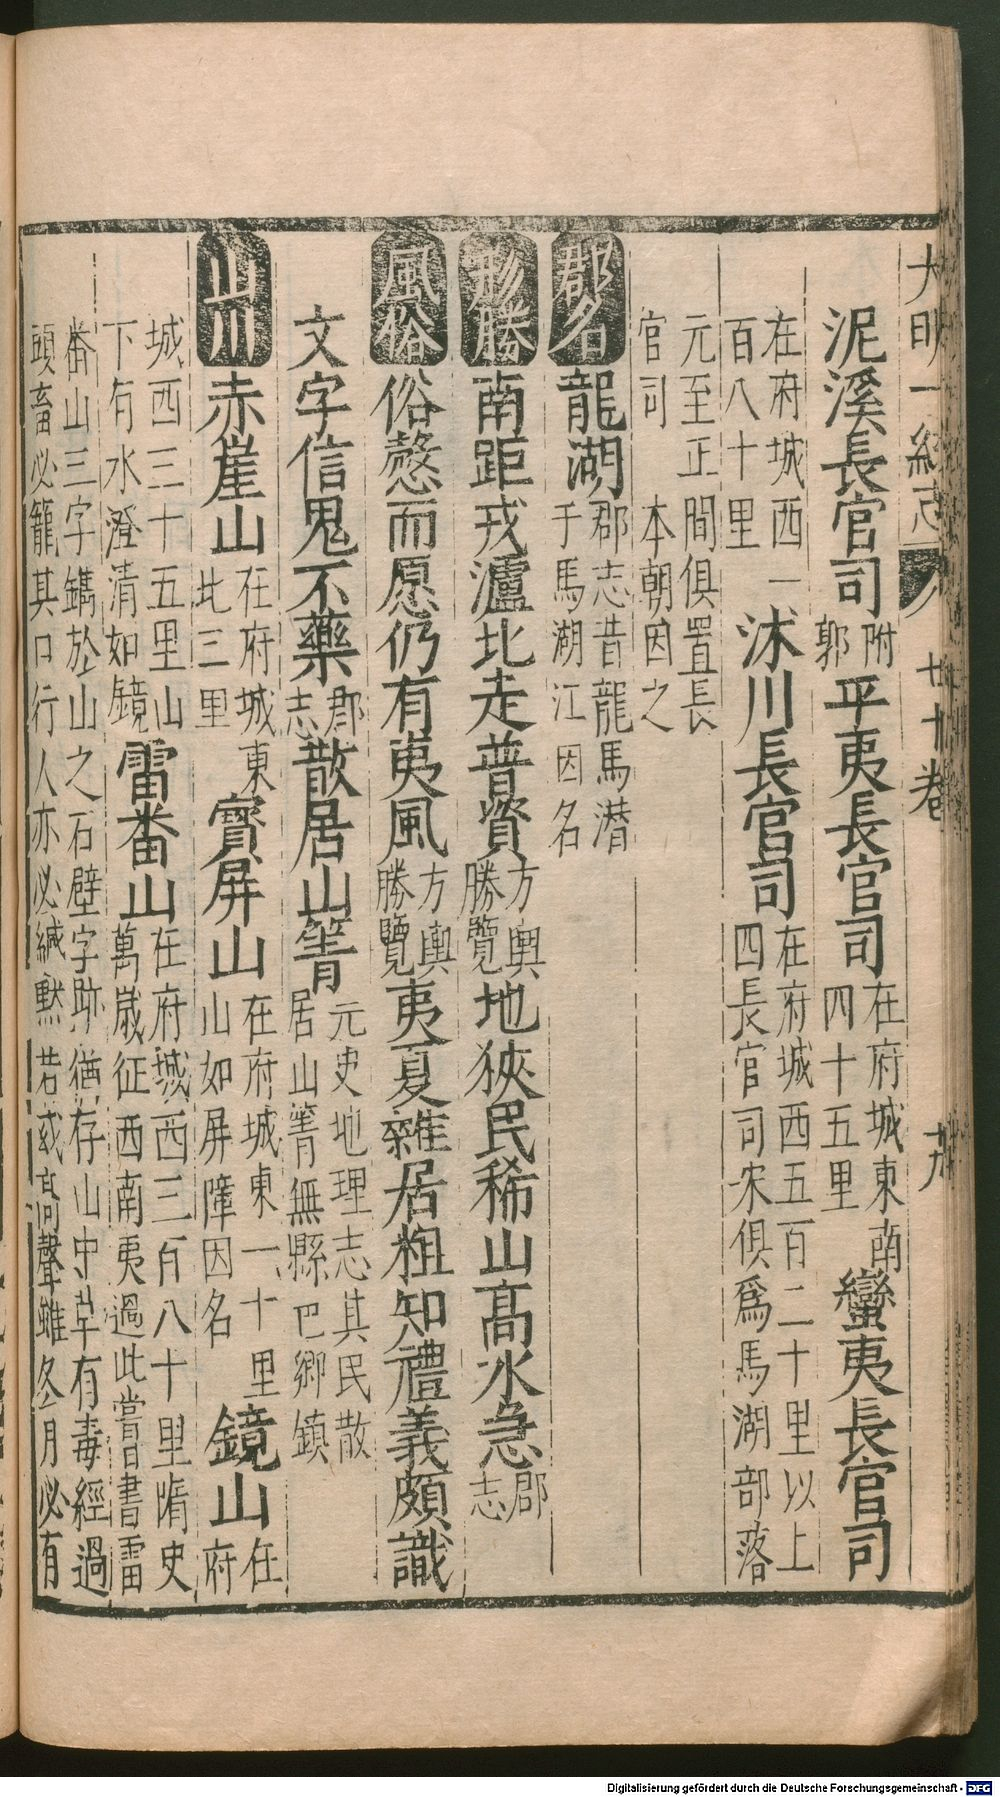 大明一統志 七十卷
泥溪長官司附郭平夷長官司在府城東南四十五里蠻夷長官司
在府城西一百八十里沐川長官司在府城西五百二十里以上四長官司宋俱爲馬湖部落
元至正間俱置長官司本朝因之
郡名龍湖郡志昔龍馬潛于馬湖江因名
形勝南距戎瀘北走普資方輿勝覽地狹民稀山高水急郡志
風俗俗慤而愿仍有夷風方輿勝覽夷夏雜居粗知禮義頗識
文字信鬼不藥郡志散居山箐元史地理志其民散居山箐無縣巴鄉鎮
山川赤崖山在府城東北三里寳屏山在府城東一十里山如屏障因名鏡山在府
城西三十五里山下有水澄清如鏡雷番山在府城西三百八十里隋史萬嵗征西南夷過此嘗書雷
番山三字鐫於山之石壁字跡猶存山中草有毒經過頭畜必籠其口行人亦必緘黙若或高聲雖冬月必有
Digitalisierung gefördert durch die Deutsche Forschungsgemeinschaft - DFG